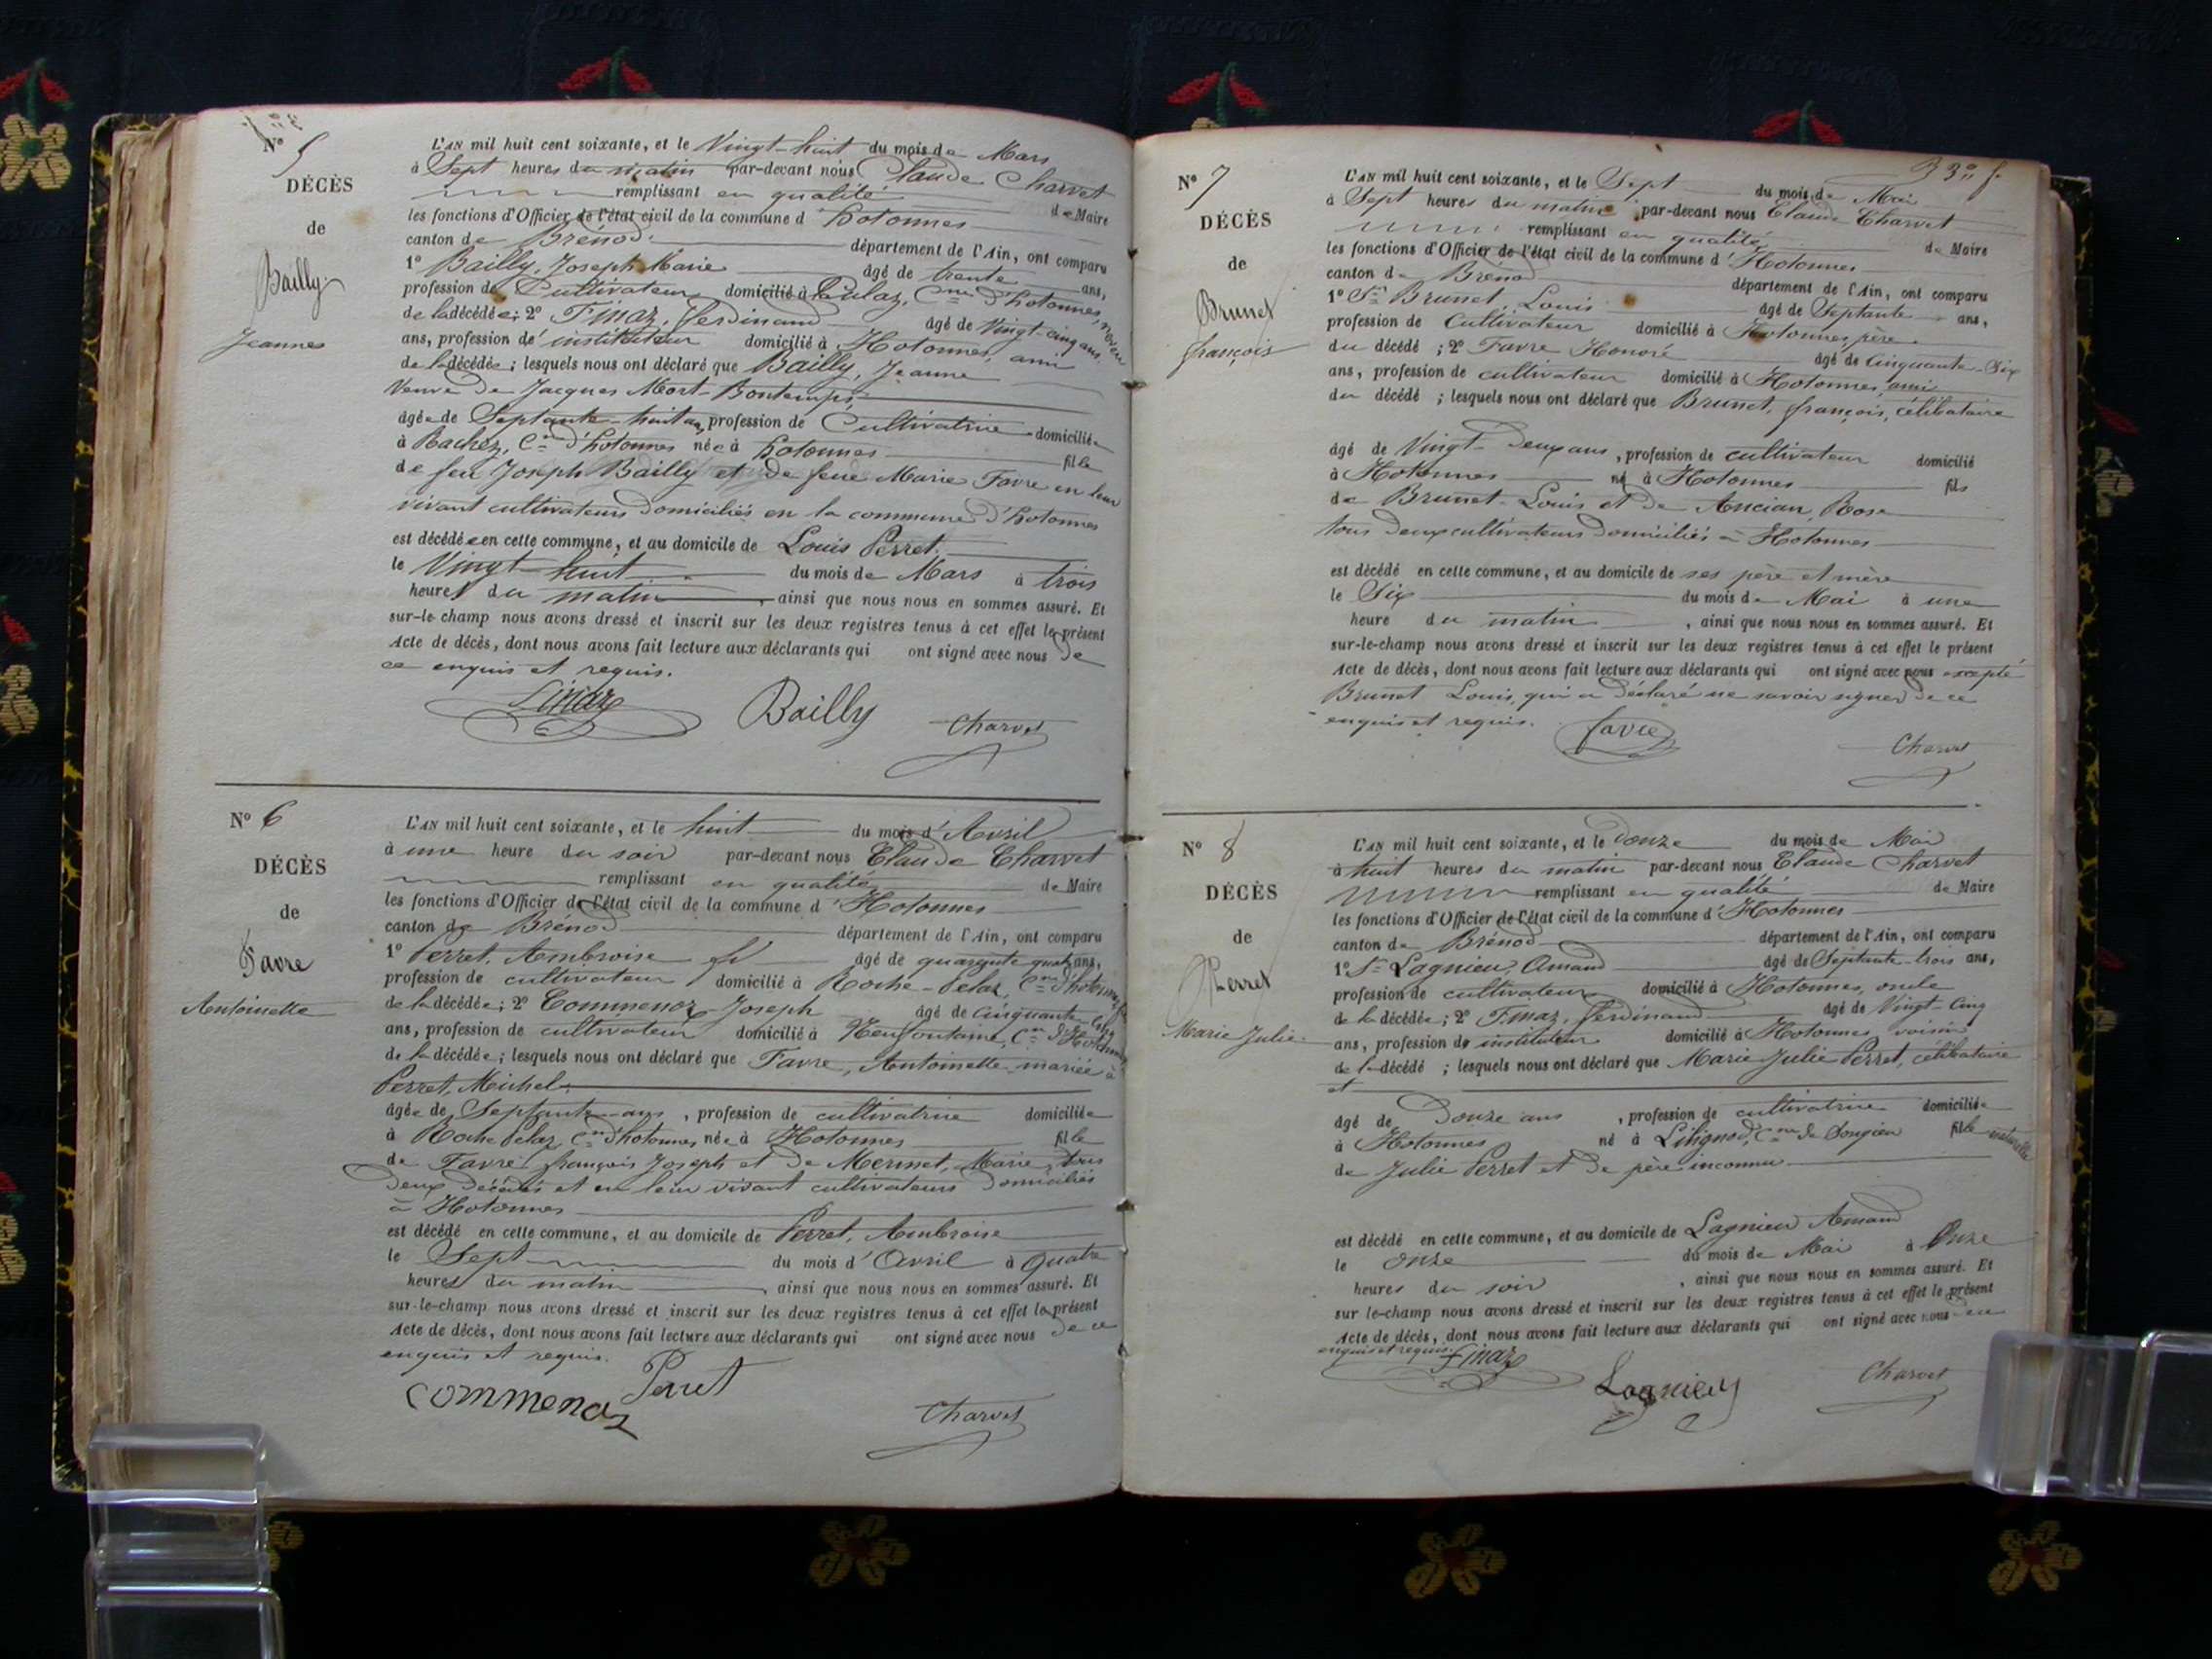 Nº 5
DÉCÈS
de
Bailly
Jeanne
L'AN mil huit cent soixante, et le Vingt-huit du mois de Mars
à Sept heures du matin par-devant nous Claude Charvet
remplissant en qualité de Maire
les fonctions d'Officier de l'état civil de la commune d'hotonnes
canton de Brénod département de l'Ain, ont comparu
1º Bailly, Joseph Marie âgé de trente ans,
profession de Cultivateur domicilié à Cne d'hotonnes, neveu
de la décédée; 2º Finaz, ferdinand âgé de Vingt-cinq ans
ans, profession d'instituteur domicilié à Hotonnes, ami
de la décédée; lesquels nous ont déclaré que Bailly, Jeanne
Veuve de Jacques Mort-Bontemps,
âgée de Septante-huit ans, profession de Cultivatrice domiciliée
à Rachez, Cne d'hotonnes née à hotonnes fille
de feu Joseph Bailly et de feue Marie Favre en leur
vivant cultivateurs domiciliés en la commune d'hotonnes
est décédée en cette commune, et au domicile de Louis Perret.
le Vingt-huit du mois de Mars à trois
heures du matin, ainsi que nous nous en sommes assuré. Et
sur-le-champ nous avons dressé et inscrit sur les deux registres tenus à cet effet le présent
Acte de décès, dont nous avons fait lecture aux déclarants qui ont signé avec nous de
ce enquis et requis.
Finaz Bailly Charvet
Nº 6
DÉCÈS
de
Favre
Antoinette
L'AN mil huit cent soixante, et le huit du mois d'Avril
à une heure du soir par-devant nous Claude Charvet
remplissant en qualité de Maire
les fonctions d'Officier de l'état civil de la commune d'Hotonnes
canton de Brénod département de l'Ain, ont comparu
1º Perret, Ambroise âgé de quarante quatre ans,
profession de cultivateur domicilié à Roche-Pelaz, Cne d'hotonnes
de la décédée; 2º Commenoz Joseph âgé de cinquante
ans, profession de cultivateur domicilié à Neufontaine, Cne d'Hotonnes
de la décédée; lesquels nous ont déclaré que Favre, Antoinette mariée à
Perret, Michel.
âgée de Septante ans, profession de cultivatrice domiciliée
à Roche Pelaz, Cne d'hotonnes née à Hotonnes fille
de Favre françois Joseph et de Mermet, Marie, tous
deux décédés et en leur vivant cultivateurs domiciliés
à Hotonnes
est décédé en cette commune, et au domicile de Perret, Ambroise
le Sept du mois d'Avril à quatre
heures du matin, ainsi que nous nous en sommes assuré. Et
sur-le-champ nous avons dressé et inscrit sur les deux registres tenus à cet effet le présent
Acte de décès, dont nous avons fait lecture aux déclarants qui ont signé avec nous de ce
enquis et requis.
Commenoz Perret Charvet
33e f.
Nº 7
DÉCÈS
de
Brunet
françois
L'AN mil huit cent soixante, et le Sept du mois de Mai
à Sept heures du matin par-devant nous Claude Charvet
remplissant en qualité de Maire
les fonctions d'Officier de l'état civil de la commune d'Hotonnes
canton de Brénod département de l'Ain, ont comparu
1º Sr Brunet, Louis âgé de Septante ans,
profession de Cultivateur domicilié à Hotonnes, père
du décédé; 2º Favre Honoré âgé de Cinquante-Six
ans, profession de cultivateur domicilié à Hotonnes, ami
du décédé; lesquels nous ont déclaré que Brunet, françois, célibataire
âgé de Vingt-Deux ans, profession de cultivateur domicilié
à Hotonnes né à Hotonnes fils
de Brunet Louis et de Ancian, Rose
tous deux cultivateurs domiciliés à Hotonnes
est décédé en cette commune, et au domicile de ses père et mère
le Six du mois de Mai à une
heure du matin, ainsi que nous nous en sommes assuré. Et
sur-le-champ nous avons dressé et inscrit sur les deux registres tenus à cet effet le présent
Acte de décès, dont nous avons fait lecture aux déclarants qui ont signé avec nous excepté
Brunet Louis, qui a déclaré ne savoir signer de ce
enquis et requis.
favre Charvet
Nº 8
DÉCÈS
de
Perret
Marie Julie
L'AN mil huit cent soixante, et le Douze du mois de Mai
à huit heures du matin par-devant nous Claude Charvet
remplissant en qualité de Maire
les fonctions d'Officier de l'état civil de la commune d'Hotonnes
canton de Brénod département de l'Ain, ont comparu
1º Sr Lagnieu, Amand âgé de Septante-trois ans,
profession de cultivateur domicilié à Hotonnes, oncle
de la décédée; 2º Finaz, ferdinand âgé de Vingt-Cinq
ans, profession de instituteur domicilié à Hotonnes voisin
de la décédé; lesquels nous ont déclaré que Marie Julie Perret, célibataire
et
âgé de Douze ans, profession de cultivatrice domiciliée
à Hotonnes né à Lilignod, Cne de Songieu fille naturelle
de Julie Perret et de père inconnu
est décédé en cette commune, et au domicile de Lagnieu Amand
le onze du mois de Mai à Onze
heures du soir, ainsi que nous nous en sommes assuré. Et
sur le-champ nous avons dressé et inscrit sur les deux registres tenus à cet effet le présent
Acte de décès, dont nous avons fait lecture aux déclarants qui ont signé avec nous de ce
enquis et requis.
Finaz Lagnieu Charvet